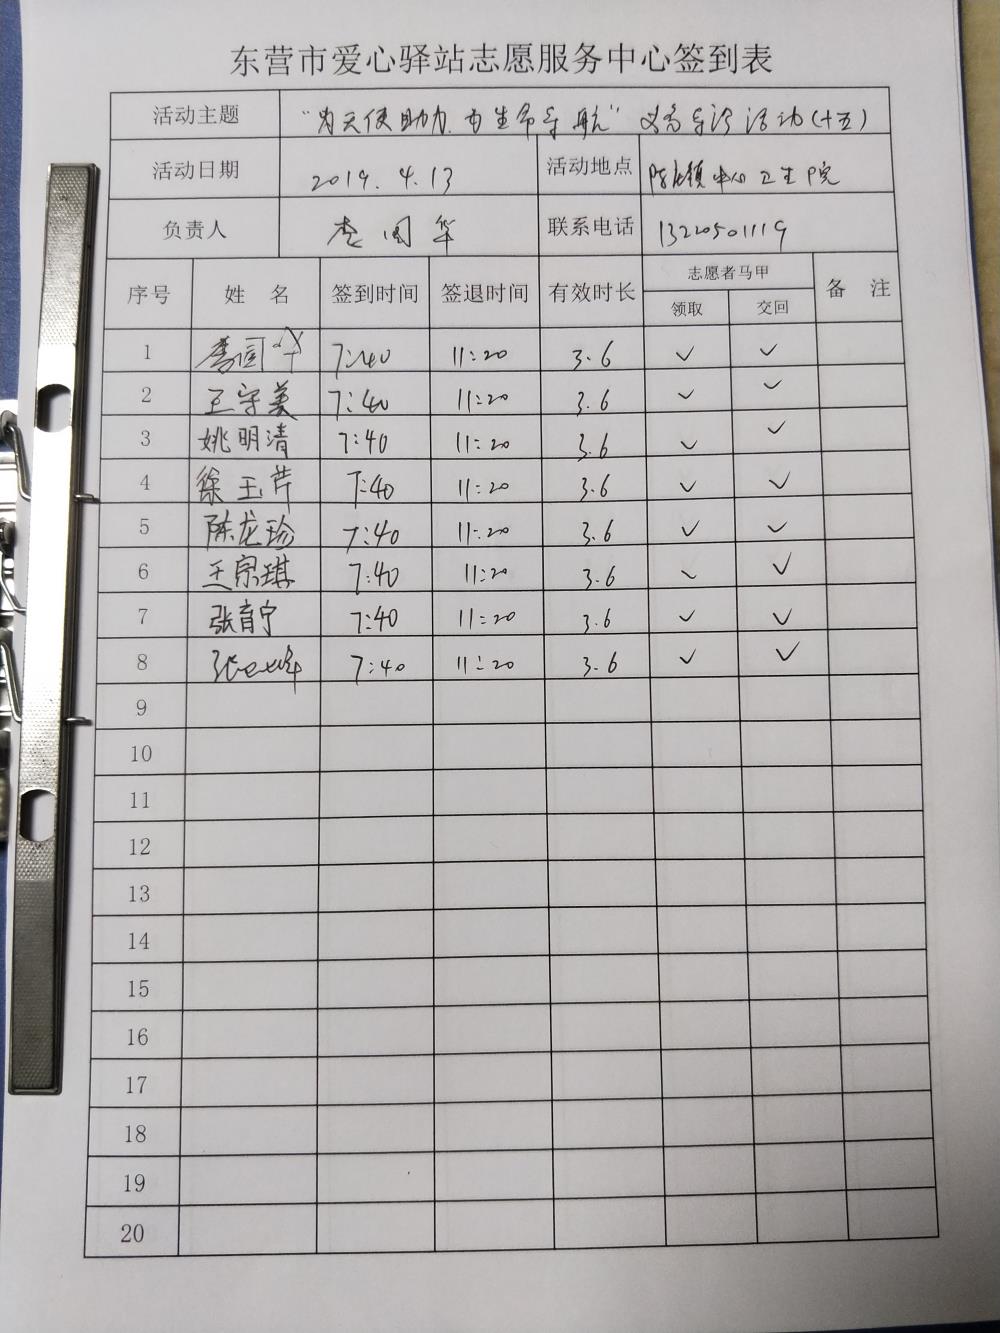 东营市爱心驿站志愿服务中心签到表
活动主题 "为天使助力 为生命导航" 义务导诊活动(十五)
活动日期 2019.4.13 活动地点 陈庄镇中心卫生院
负责人 李国华 联系电话 13220501119
序号 姓 名 签到时间 签退时间 有效时长 志愿者马甲 备 注
领取 交回
1 李国华 7:40 11:20 3.6 ✓ ✓
2 王守美 7:40 11:20 3.6 ✓ ✓
3 姚明清 7:40 11:20 3.6 ✓ ✓
4 徐玉芹 7:40 11:20 3.6 ✓ ✓
5 陈龙珍 7:40 11:20 3.6 ✓ ✓
6 王宗琪 7:40 11:20 3.6 ✓ ✓
7 张育宁 7:40 11:20 3.6 ✓ ✓
8 7:40 11:20 3.6 ✓ ✓
9
10
11
12
13
14
15
16
17
18
19
20